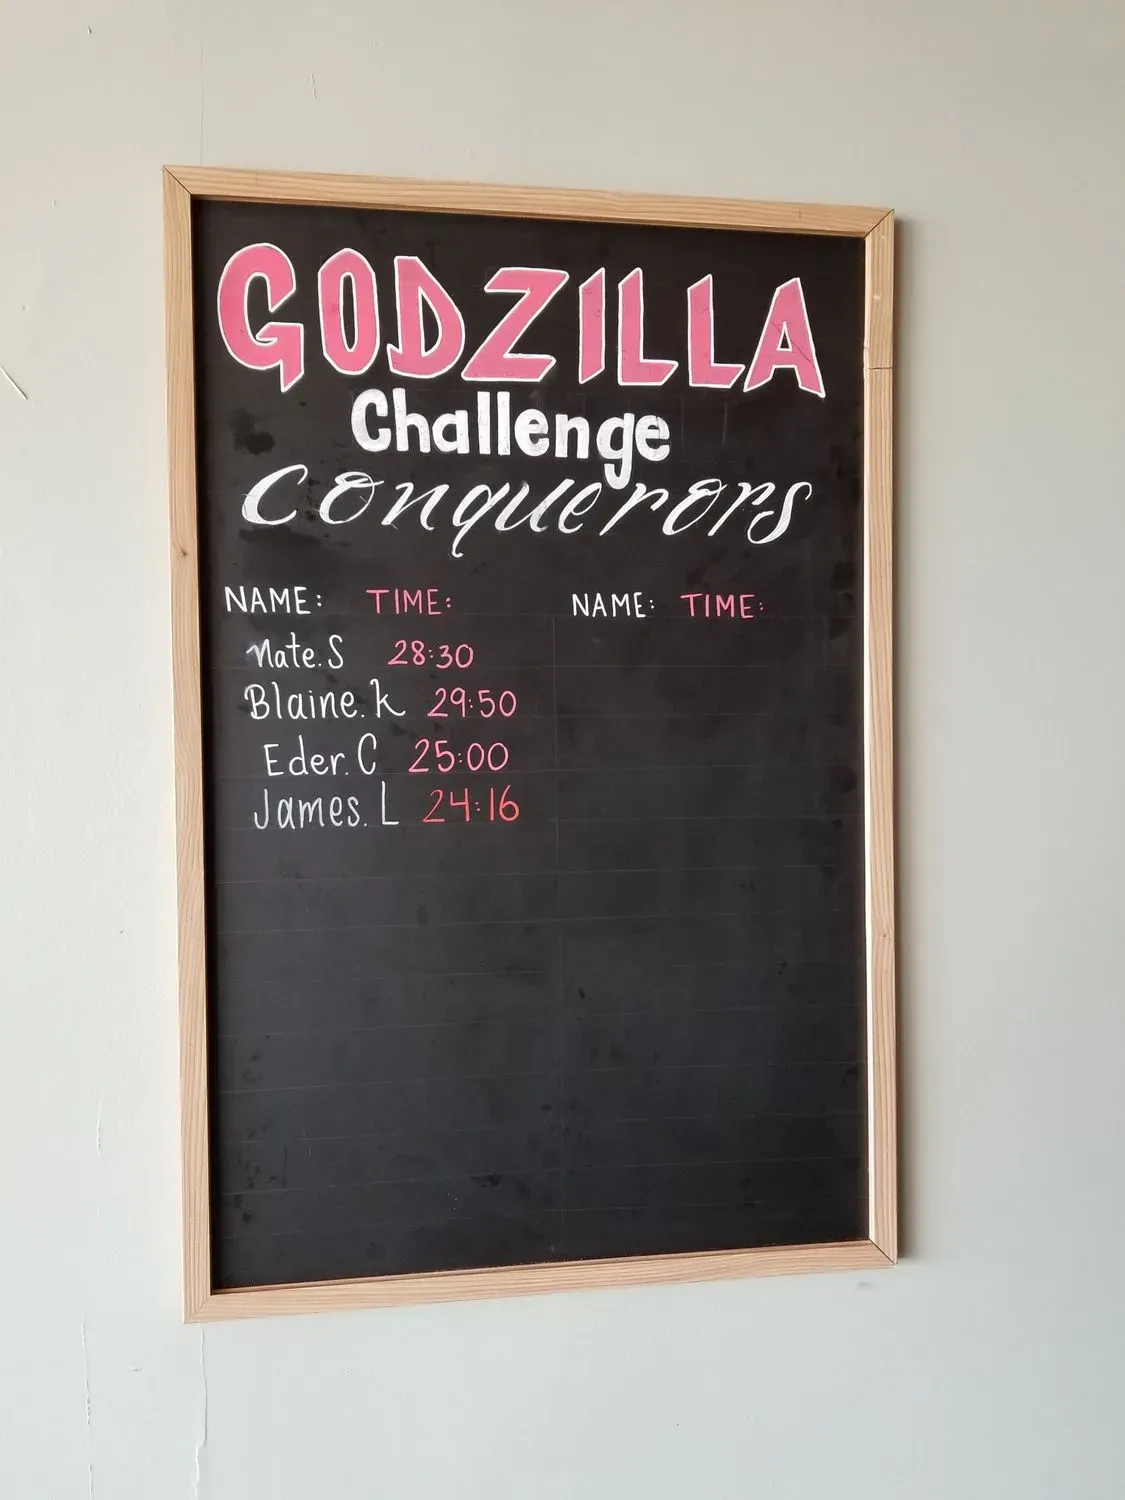 GODZILLA
Challenge
Conquerors
NAME: TIME: NAME: TIME:
Nate.S 28:30
Blaine.K 29:50
Eder.C 25:00
James.L 24:16